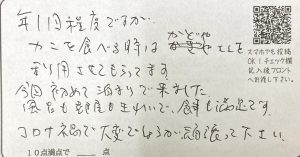 年1回程度ですが、
カニを食べる時は かどやさんを
利用させてもらってます。
今回初めて泊まりで来ました
風呂も部屋もきれいで、食事も満足です。
コロナ禍で大変でしょうが頑張って下さい。
10点満点で 点
スマホでも投稿
OK！チェック欄
記入後フロント
へお渡し下さい。